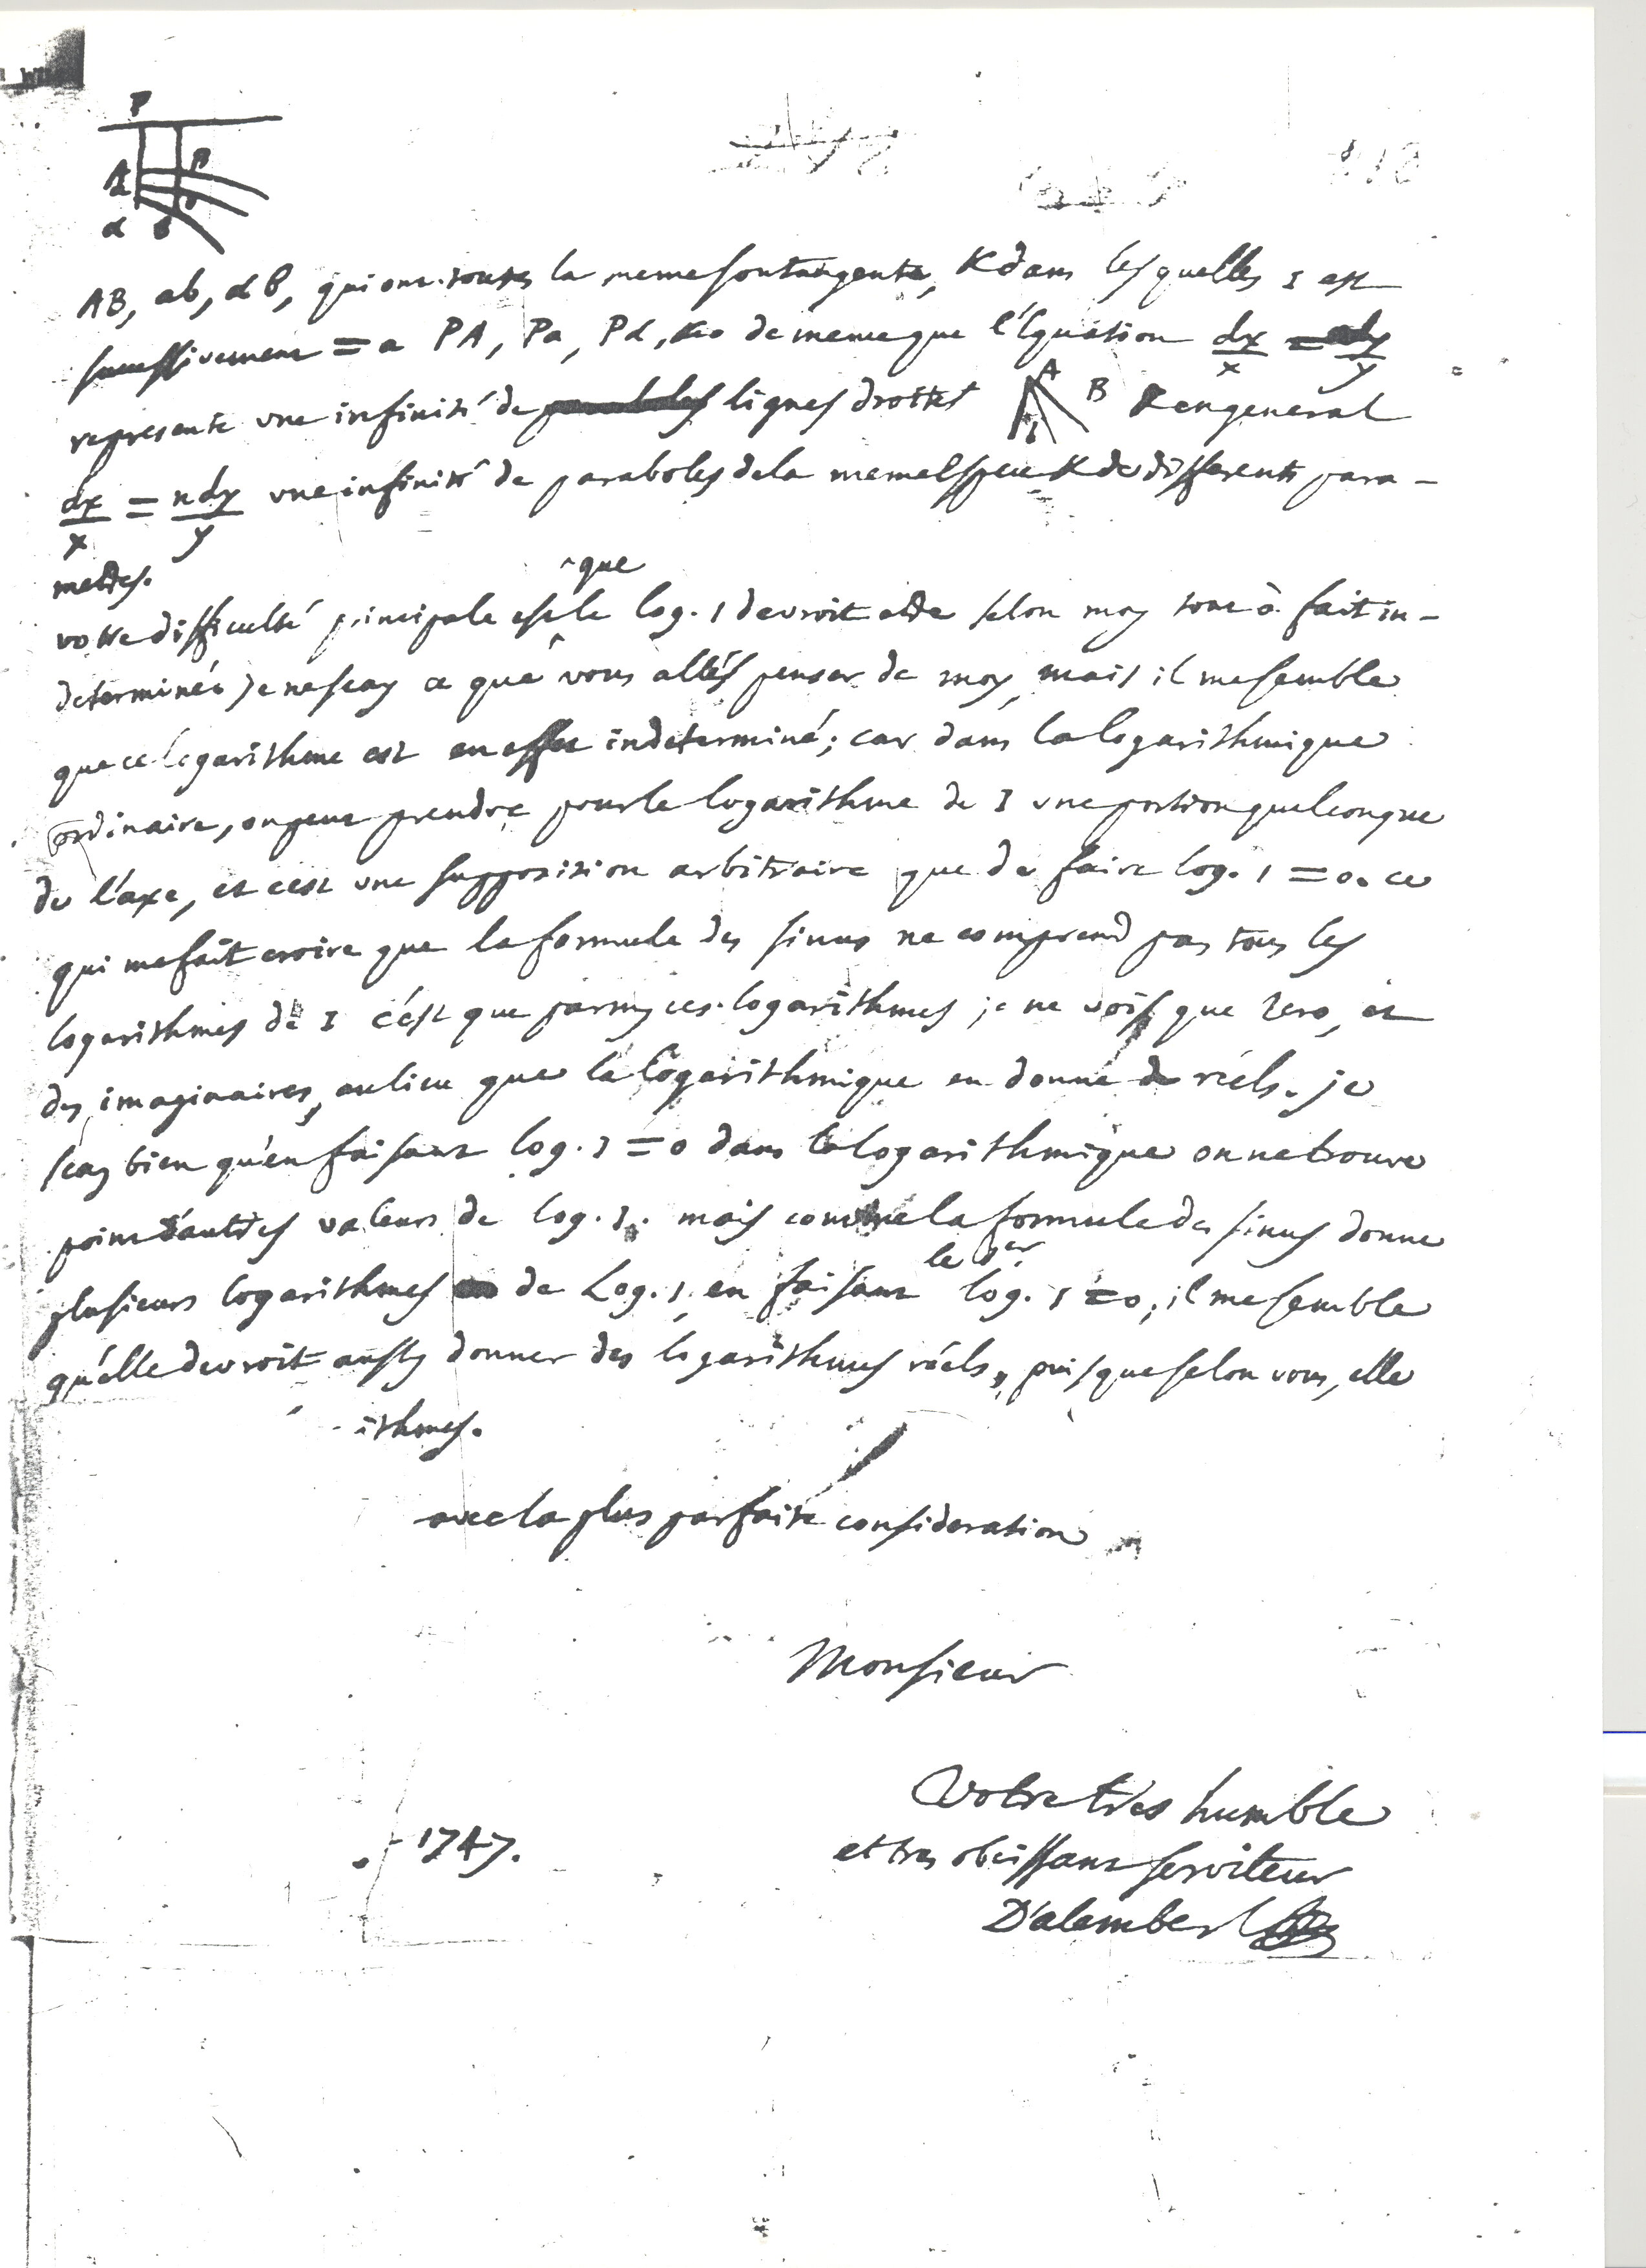 P
A B
a b
α β
AB, ab, αβ, qui ont toutes la meme soutangente, & dans lesquelles 1 est
successivement = a PA, Pa, Pα, &c. de meme que l'Equation dx/x = dy/y
represente une infinité de paraboles lignes droites A B & en general
dx/x = ndy/y une infinité de paraboles de la meme espece & de differents para-
metres.
que
votre difficulté principale est le log. 1 devroit etre selon moy tout à fait in-
determiné je ne scay ce que vous allés penser de moy, mais il me semble
que ce logarithme est en effet indeterminé; car dans la logarithmique
ordinaire, on peut prendre pour le logarithme de 1 une portion quelconque
de l'axe, et c'est une supposition arbitraire que de faire log. 1 = 0. ce
qui me fait croire que la formule des sinus ne comprend pas tous les
logarithmes de 1 c'est que parmy ces logarithmes je ne vois que zero, et
des imaginaires, au lieu que la logarithmique en donne de réels. je
scay bien qu'en faisant log. 1 = 0 dans la logarithmique on ne trouve
point d'autres valeurs de log. 1. mais comme la formule des sinus donne
le 1er
plusieurs logarithmes de Log. 1, en faisant log. 1 = 0, il me semble
qu'elle devroit aussy donner des logarithmes réels, puisque selon vous, elle
ithmes.
avec la plus parfaite consideration
Monsieur
Votre tres humble
et tres obeissant serviteur
1747.
D'alembert